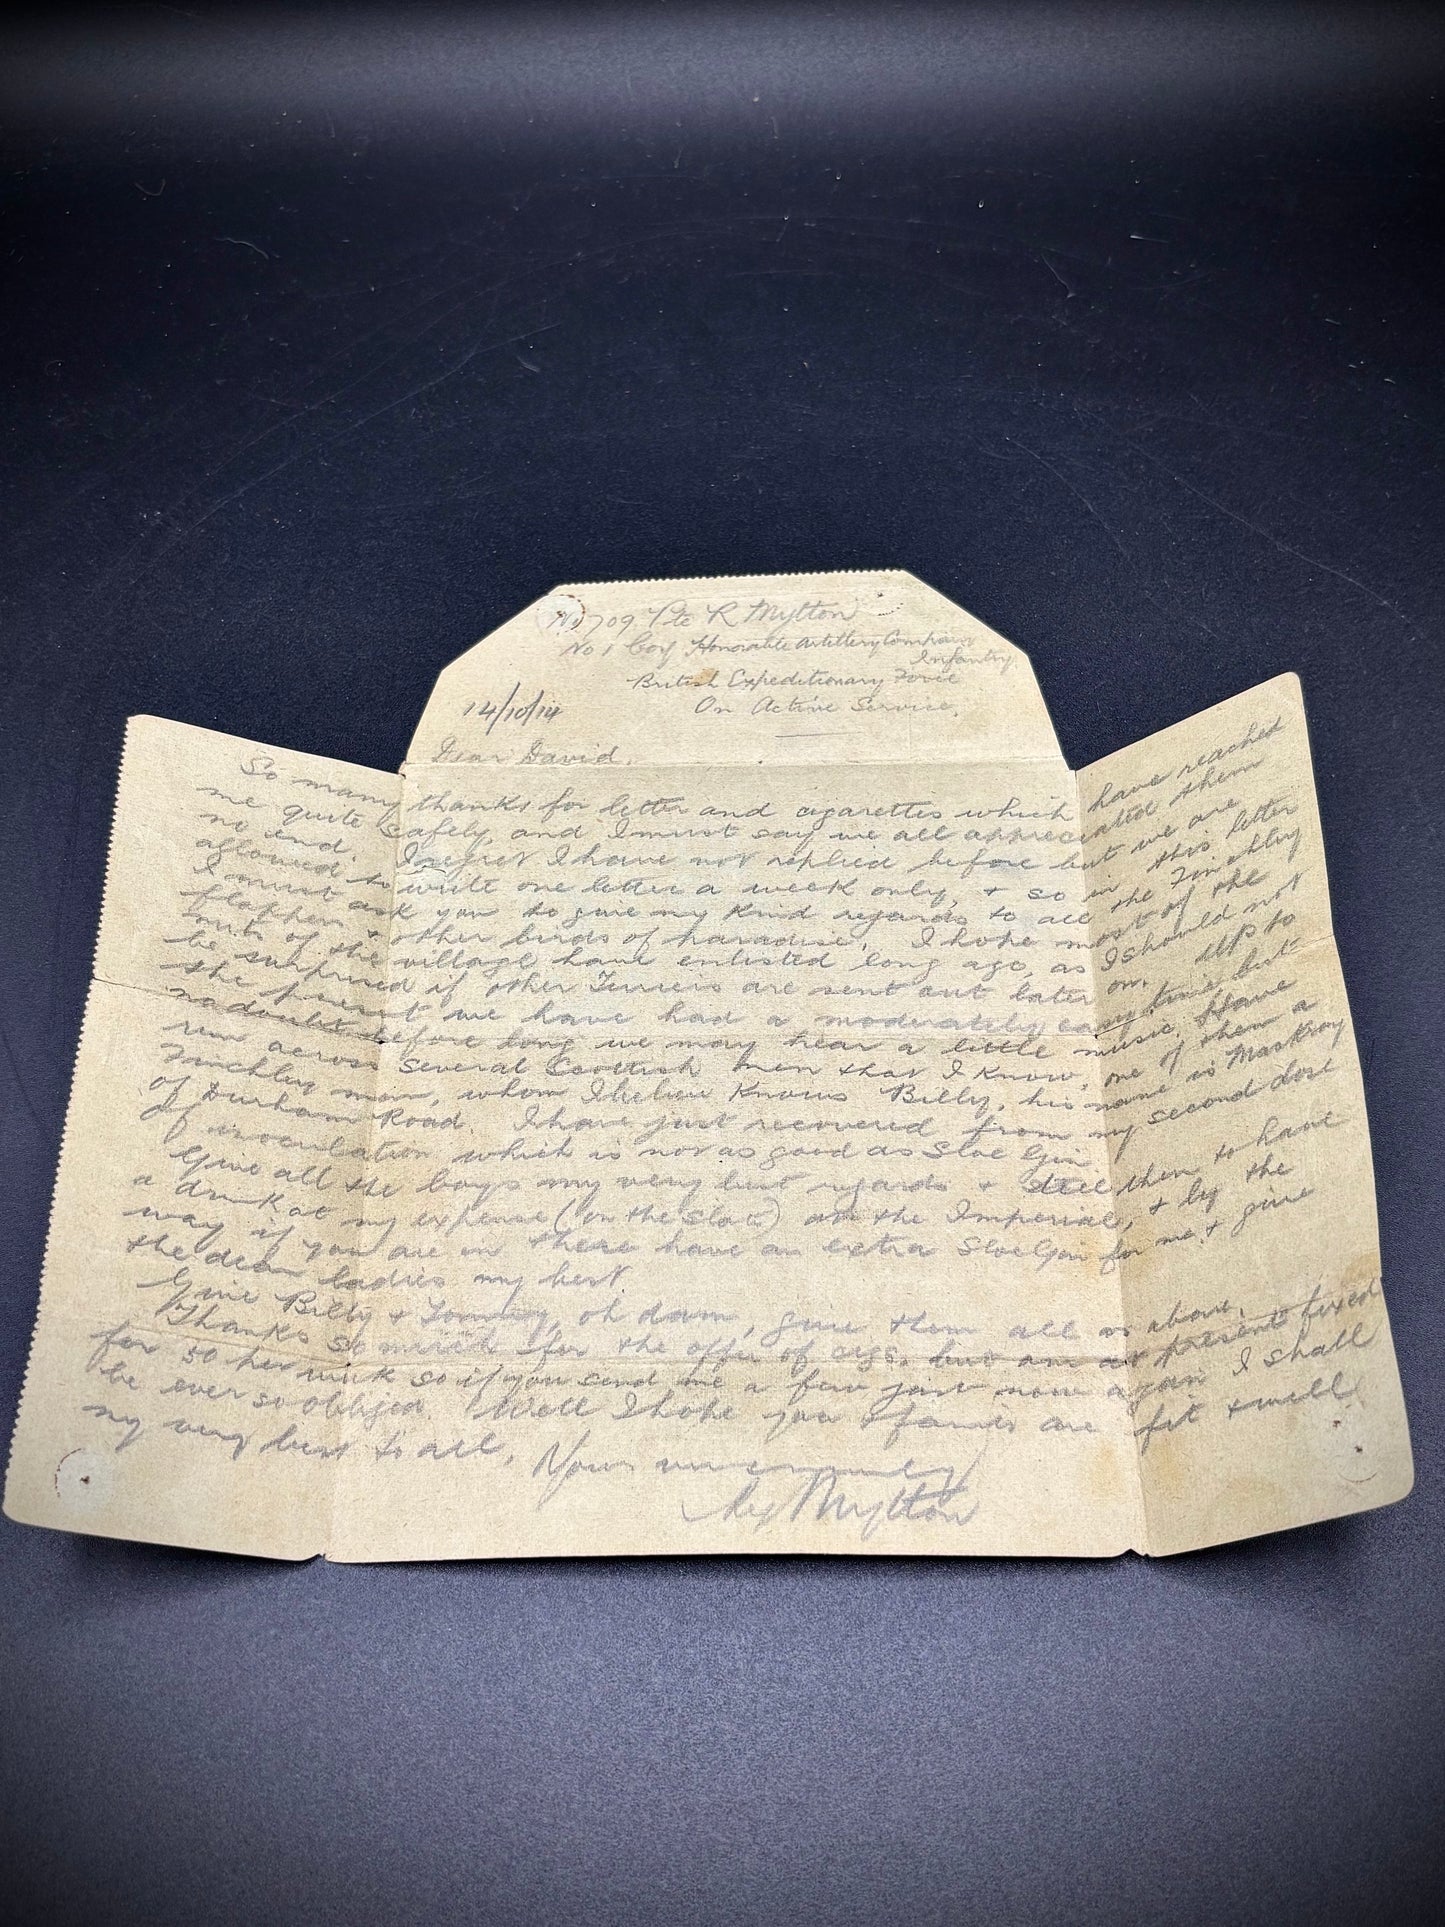 No 709 Pte R Mytton
No 1 Coy Honorable Artillery Company
Infantry
British Expeditionary Force
14/10/14 On Active Service.
Dear David,
So many thanks for letter and cigarettes which have reached
me quite safely, and I must say we all appreciated them
no end. I regret I have not replied before but we are
allowed to write one letter a week only, & so in this letter
I must ask you to give my kind regards to all the Finchley
flappers & other birds of paradise. I hope most of the
nuts of the village have enlisted long ago, as I should not
be surprised if other Terriers are sent out later on. Up to
the present we have had a moderately easy time but
no doubt before long we may hear a little music. Have
run across several Scottish men that I know, one of them a
Finchley man, whom I believe knows Billy, his name is
of Durham Road. I have just recovered from my second dose
of inoculation which is not as good as Sloe Gin.
Give all the boys my very best regards & tell them to have
a drink at my expense (on the slate) at the Imperial, & by the
way if you are in there have an extra Sloe Gin for me, & give
the dear ladies my best.
Give Billy & Tommy, oh damn, give them all as above.
Thanks so much for the offer of cigs. but am at present fixed
for 50 per week so if you send me a few just now again I shall
be ever so obliged. Well I hope you & family are fit & well
my very best to all,
Yours very sincerely
Mytton